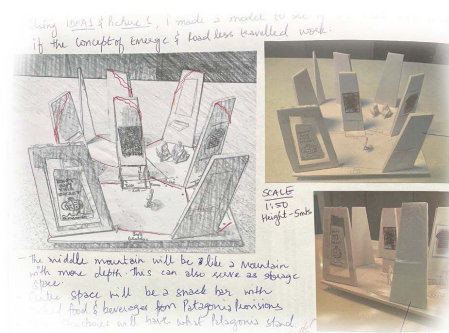 using IDEAS & Picture 6, I made a model to see
if the concept of Emerge & Road less travelled work.
SCALE
1:50
Height - 5mts
- The middle mountain will be like a Mountain
with more depth. This can also serve as storage
space.
space will be a snack bar with
food & beverages from Patagonia Provisions
will have what Patagonia stand